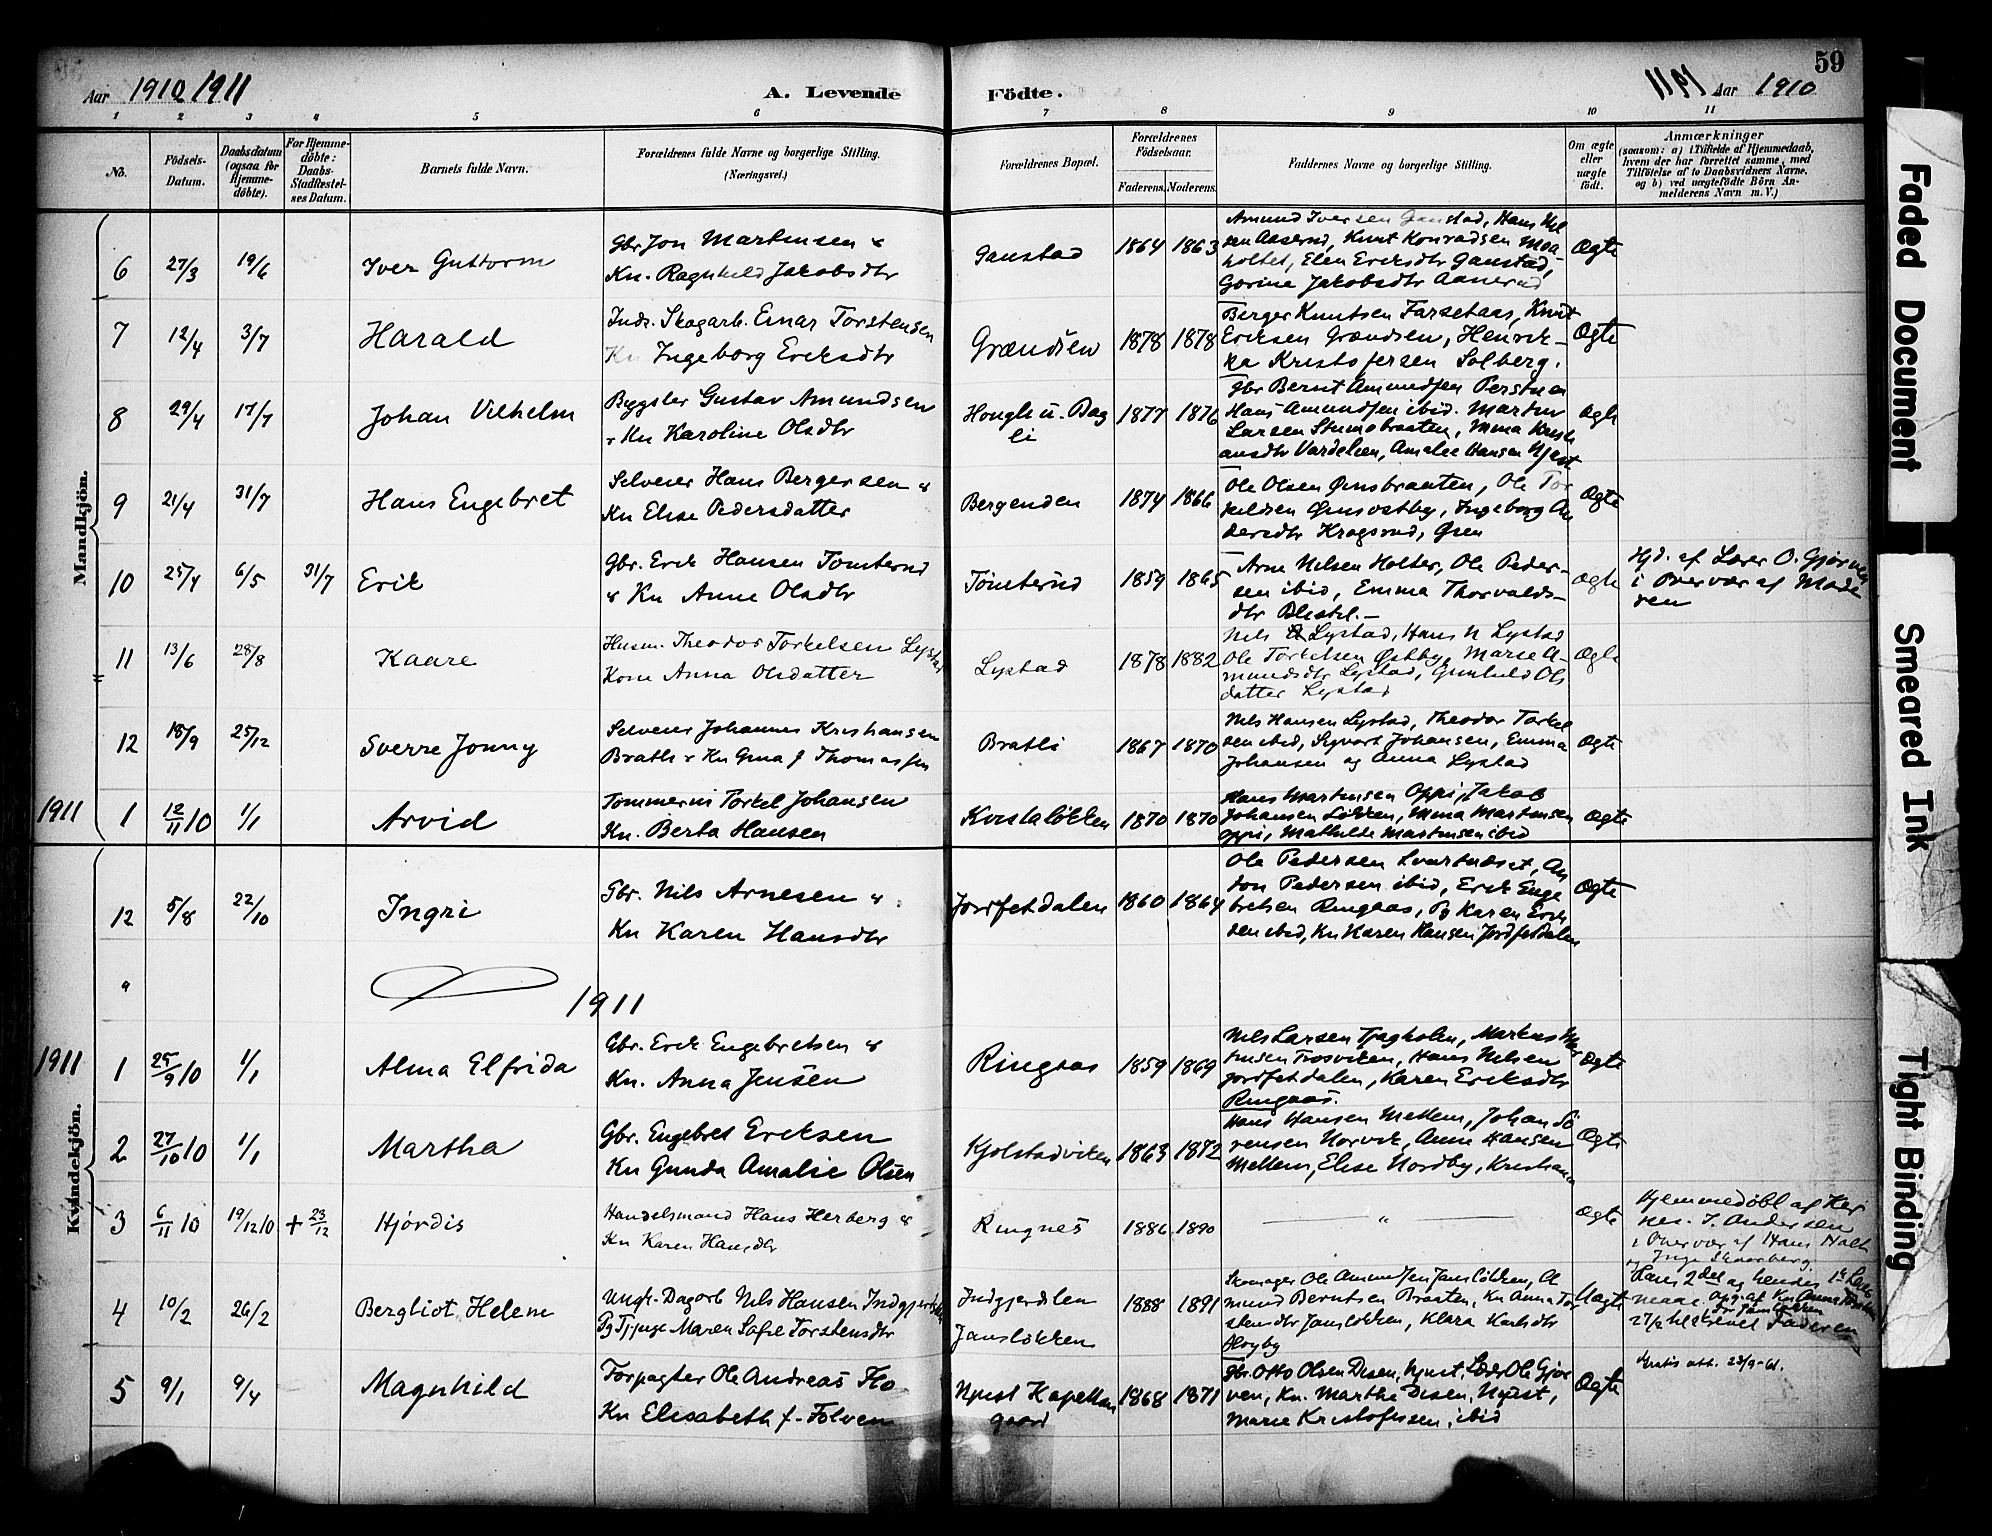 59
Aar 1910 1911 A. Levende Födte. 1911 Aar 1910
1 2 3 4 5 6 7 8 9 10 11
No.
Födsels-Datum.
Daabsdatum (ogsaa for Hjemme-döbte).
For Hjemme-döbte: Daabs-Stadfæstel-ses Datum.
Barnets fulde Navn.
Forældrenes fulde Navne og borgerlige Stilling.
(Næringsvei.)
Forældrenes Bopæl.
Forældrenes Födselsaar.
Faderens. Moderens.
Faddernes Navne og borgerlige Stilling.
Om ægte eller uægte födt.
Anmærkninger
(saasom: a) i Tilfælde af Hjemmedaab,
hvem der har forrettet samme, med
Tilföielse af to Daabsvidners Navne,
og b) ved uægtefödte Börn An-
melderens Navn m. V.)
Mandkjön.
6 27/3 19/6 Iver Guttorm
Gbr Jon Martinsen &
Kn. Ragnhild Jakobsdtr
Ganstad 1864 1863
Amund Iversen Ganstad, Hans Nil
sen Aaserud, Knut Konradsen Moa
holtet, Elen Eriksdtr Ganstad,
Gorine Jakobsdtr Aaserud
Ægte
7 12/4 3/7 Harald
Inds. Skogarb. Einar Torstensen
Kn Ingeborg Eriksdtr
Grændsen 1878 1878
Berger Knutsen Farsetaas, Knut
Eriksen Grændsen, Henrik-
ka Kristofersen Solberg.
Ægte
8 29/4 17/7 Johan Vilhelm
Bygsler Gustav Amundsen
& Kn Karoline Olsdtr
Hongli u. Bag
li
1877 1876
Gbr Bernt Amundsen Perstuen
Hans Amundsen ibid. Martin
Larsen
ansdtr Vardelien, Amalie Hansen Njøst
Ægte
9 21/4 31/7 Hans Engebret
Selveier Hans Bergersen &
Kn Elise Pedersdatter
Bergenden 1874 1866
Ole Olsen Ørnsbraaten, Ole Tor
kildsen Ørnsvestby, Ingeborg An
dersdtr Kragsrud,
Ægte
10 25/4 6/5 31/7 Erik
Gbr. Erik Hansen Tomterud
& Kn Anne Olsdtr
Tomterud 1859 1865
Arne Nilsen Holter, Ole Peder-
sen ibid, Emma Thorvalds-
dtr
Ægte
Hjd. af Lærer O. Gjørven
i Overvær af Mode
ren
11 13/6 28/8 Kaare
Husm. Theodor Torkelsen Lystad
Kone Anna Olsdatter
Lystad 1878 1882
Nils Lystad, Hans N Lystad
Ole Torkelsen Østby, Marie A-
mundsdtr Lystad, Gunhild Ols
datter Lystad
Ægte
12 18/9 25/12 Sverre Jonny
Selveier Johannes Kristiansen
Bratli & Kn Gina f Thomassen
Bratli 1867 1870
Nils Hansen Lystad, Theodor Torkel
sen ibid, Sigvart Johansen, Emma
Johansen og Anna Lystad
Ægte
1911 1 12/11 10 1/1 Arvid
Tommermd Torkel Johansen
Kn. Berta Hansen
Kvistaløkken 1870 1870
Hans Martinsen Oppi, Jakob
Johansen Løkken, Mina Martinsen
Oppi, Mathilde Martinsen ibid
Ægte
Kvindekjön.
12 5/8 22/10 Ingri
Gbr. Nils Arnesen &
Kn Karen Hansdtr
Jordfetdalen 1860 1864
Ole Pedersen Svartnæset, An
ton Pedersen ibid, Erik Enge
bretsen Ringaas, Pg Karen Erik
sen ibid, Kn Karen Hansen Jordfetdalen
Ægte
"
1911
1911 1 25/9 10 1/1 Alma Elfrida
Gbr. Erik Engebretsen &
Kn. Anna Jensen
Ringaas 1859 1869
Nils Larsen Tjagholen, Markus Mar
tinsen Trosviken, Hans Nilsen
Jordfetdalen, Karen Eriksdtr
Ringaas.
Ægte
2 27/10 10 1/1 Martha
Gbr. Engebret Eriksen
Kn Gunda Amalie Olsen
Kjolstadviken 1863 1872
Hans Hansen Mellem, Johan Sö
rensen Norvik, Anne Hansen
Mellem, Elise Nordby, Kristiania
Ægte
3 6/11 10 19/12 10 + 23/12 Hjördis
Handelsmand Hans Herberg &
Kn Karen Hansdtr
Ringnes 1886 1890
"
Ægte
Hjemmedøbt af Kir
kes. J. Andersen
i Overvær af Hans Holt
og Inga Skaarberg.
4 10/2 26/2 Bergliot Helene
Ungk. Dagarb Nils Hansen Indgjerdslien
Pg Tjpige Maren Sofie Torstensdtr
Indgjerdslien
Jansløkken
1888 1891
Skomager Ole Amundsen Jansløkken, A
mund Berntsen Braaten, Kn Anna Tor
stensdtr Jansløkken, Klara Karlsdtr
Høgby
Uægte
Hans 2det og hendes 1ste Leier
maal. Opg. af Kn Anna Torsten
dtr Jansløkken
27/2 bekrevet Faderen
5 9/1 9/4 Magnhild
Forpagter Ole Andreas Flo
Kn Elisabeth f. Folven
Njøst Kapellan
gaard
1868 1871
Gbr. Otto Olsen Disen, Njøst, Lær Ole Gjør
ven, Kn. Marthe Disen, Njøst,
Marie Kristofersen, ibid
Ægte
Gratis att. 23/9-61.
Faded Document
Smeared Ink
Tight Binding